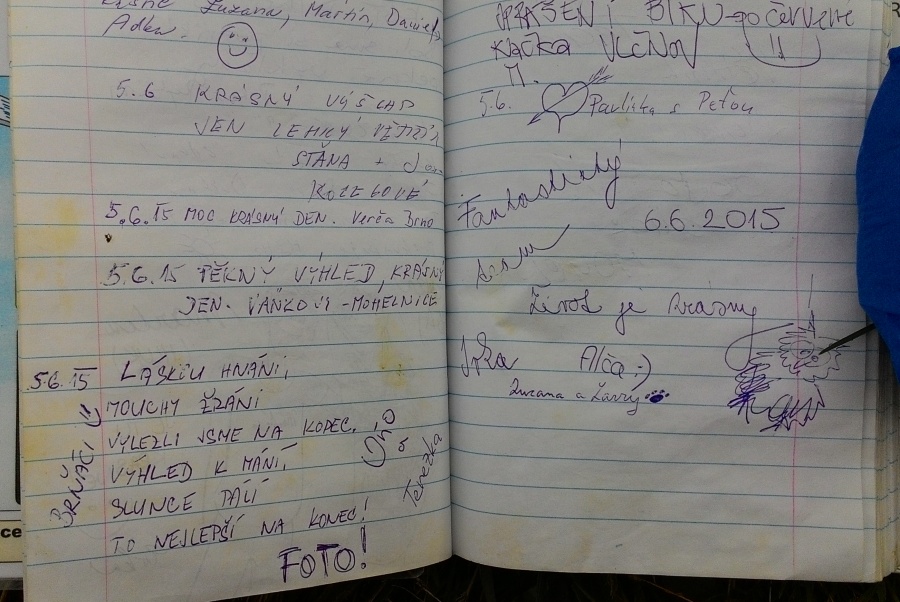 Zuzana, Martin, Daniel,
Adka.
5.6 KRÁSNÝ VÝŠCHD
JEN LEHKÝ VĚTŘÍK
STÁŇA +
KOZELOVÉ
5.6.15 MOC KRÁSNÝ DEN. Verča Brno
5.6.15 PĚKNÝ VÝHLED, KRÁSNÝ
DEN. VAŇKOVI - MOHELNICE
5.6.15 LÁSKOU HNÁNI,
MOUCHY ŽRÁNI
VYLEZLI JSME NA KOPEC.
VÝHLED K MÁNÍ,
SLUNCE PÁLÍ
TO NEJLEPŠÍ NA KONEC!
FOTO!
BRŇÁCI
Oho
Terezka
KAČKA VLČNOV
5.6. Pavlínka s Peťou
Fantastický
6.6.2015
Život je krásný
Alča :)
Zuzana a